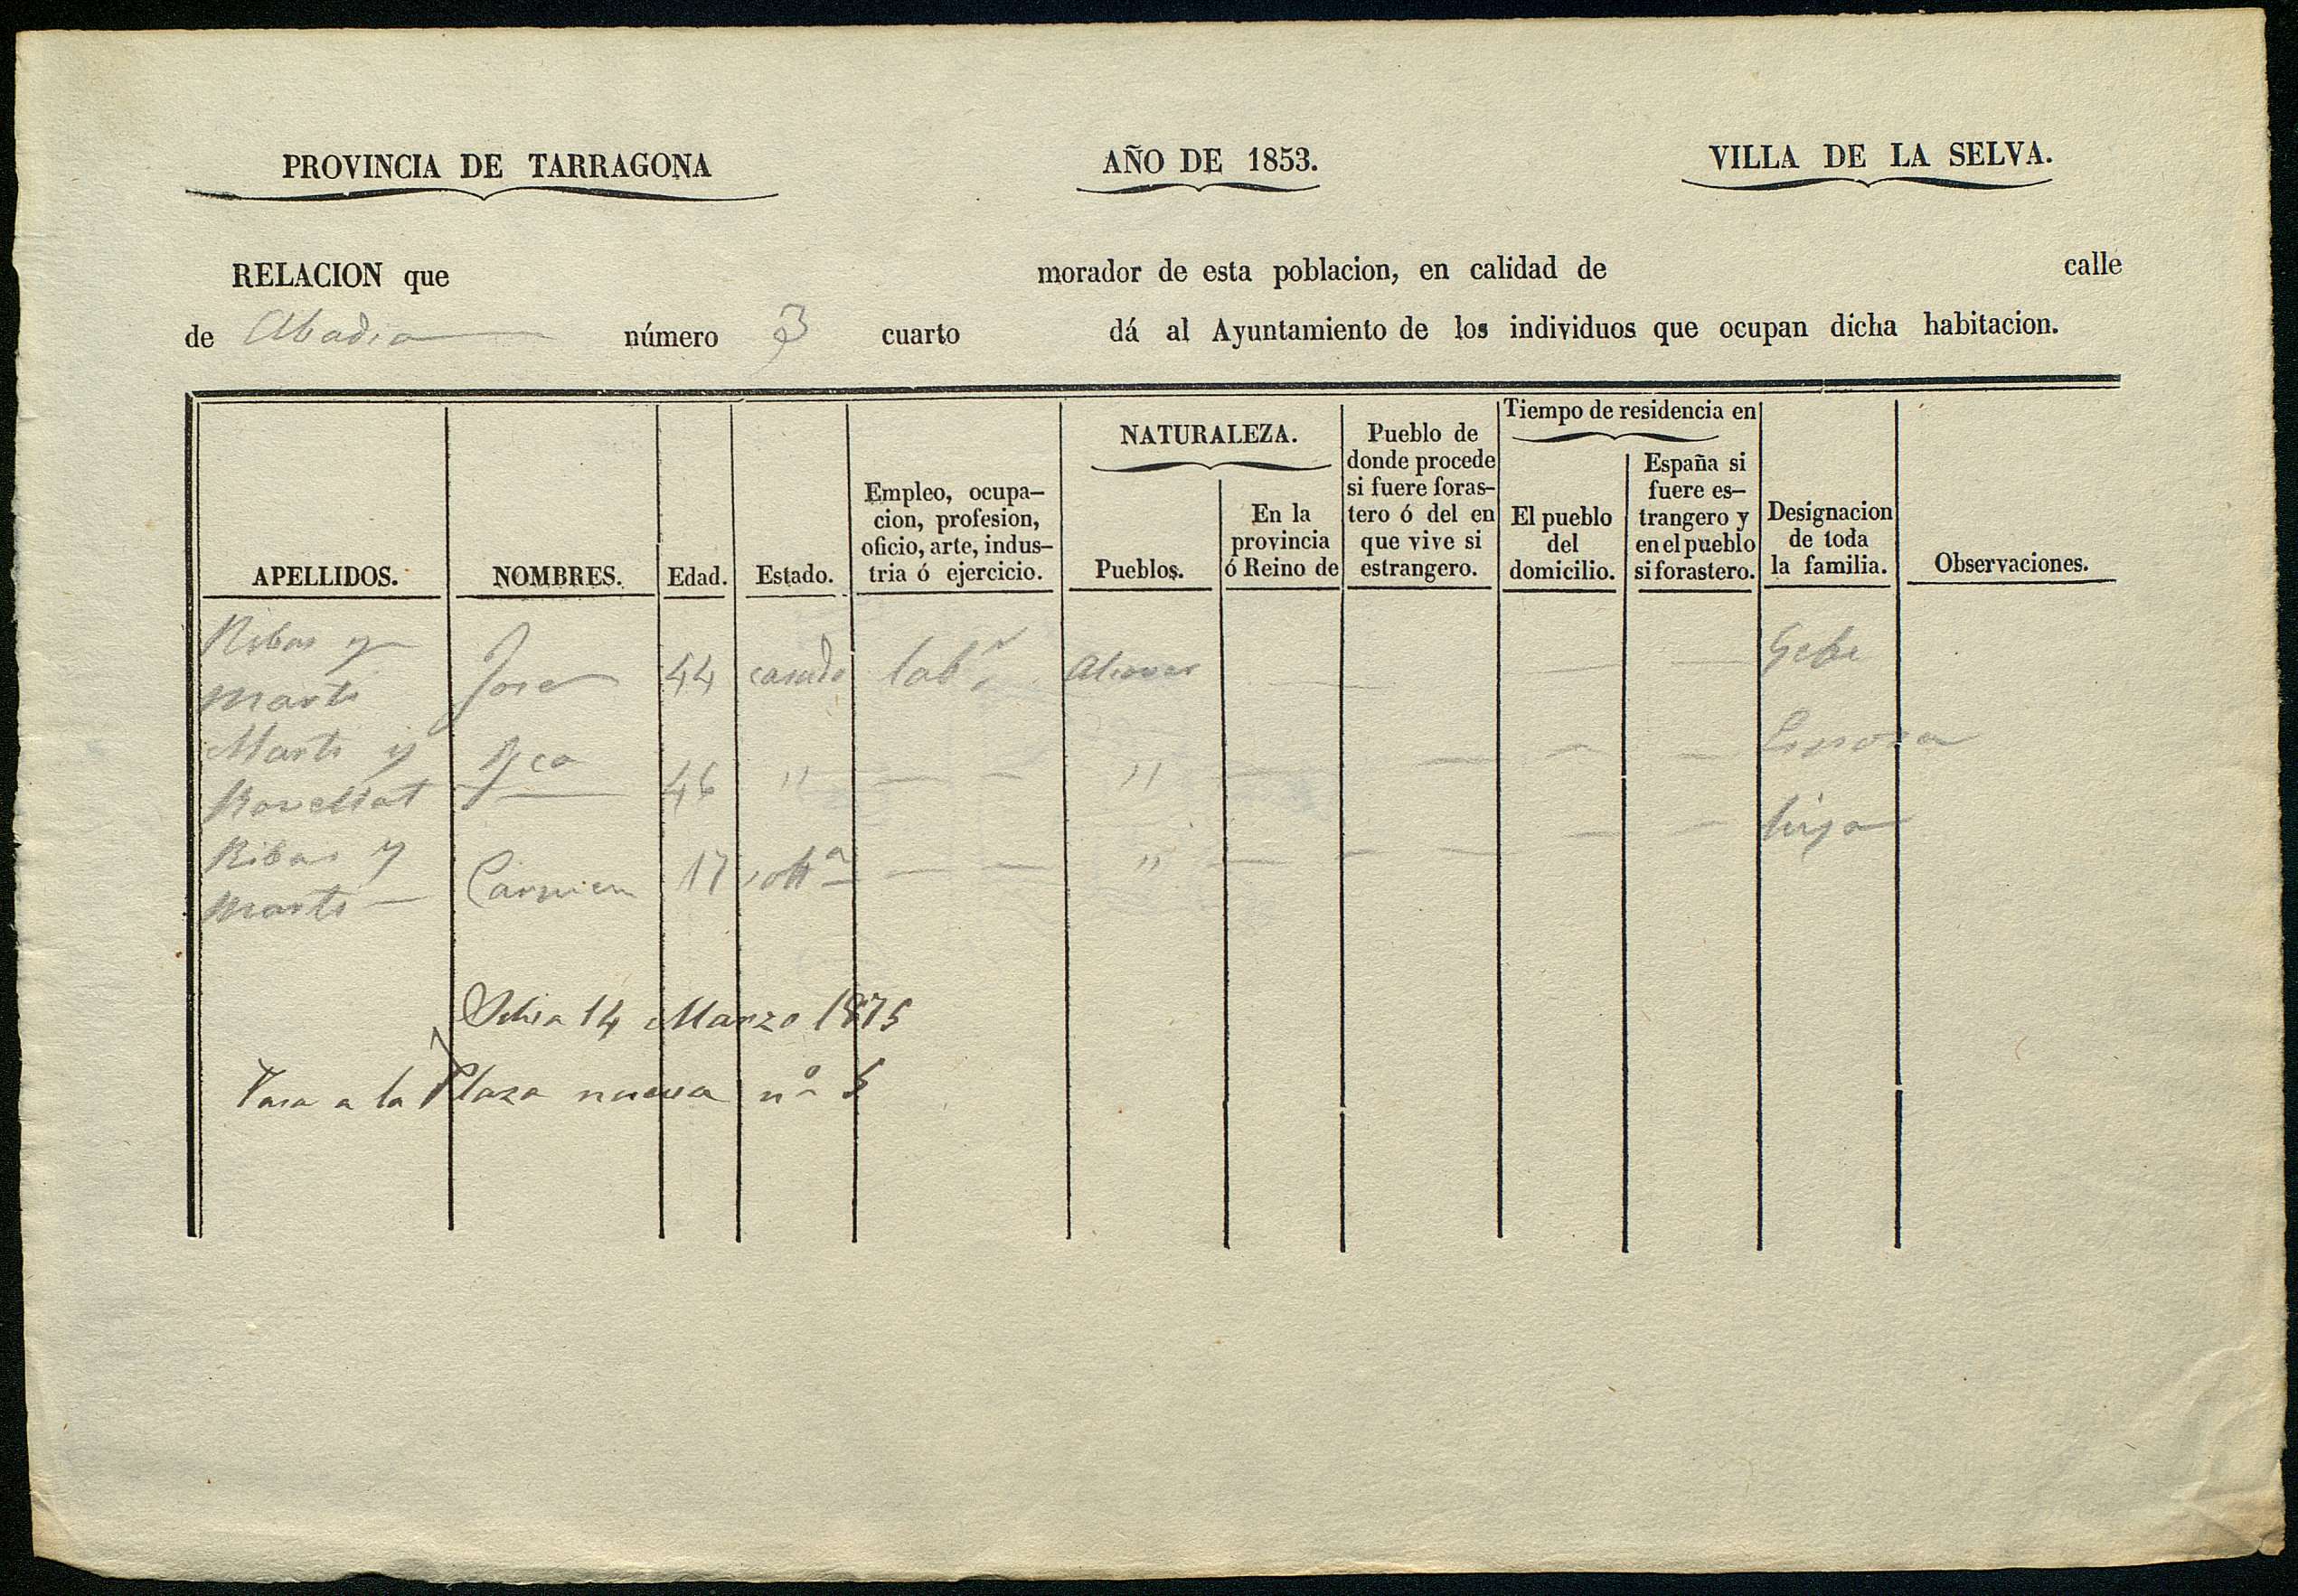 PROVINCIA DE TARRAGONA AÑO DE 1853. VILLA DE LA SELVA.
RELACION que morador de esta poblacion, en calidad de calle
de Abadia número 3 cuarto dá al Ayuntamiento de los individuos que ocupan dicha habitacion.
APELLIDOS.
NOMBRES.
Edad.
Estado.
Empleo, ocupa-
cion, profesion,
oficio, arte, indus-
tria ó ejercicio.
NATURALEZA.
Pueblos.
En la
provincia
ó Reino de
Pueblo de
donde procede
si fuere foras-
tero ó del en
que vive si
estrangero.
Tiempo de residencia en
El pueblo
del
domicilio.
España si
fuere es-
trangero y
en el pueblo
si forastero.
Designacion
de toda
la familia.
Observaciones.
Ribas y
Marti Jose 44 casado labr Gefe
Marti y
Fca 46 " " Esposa
Ribas y
Marti Carmen 17 soltª " hija
14 Marzo 1875
Pasa a la Plaza nueva nº